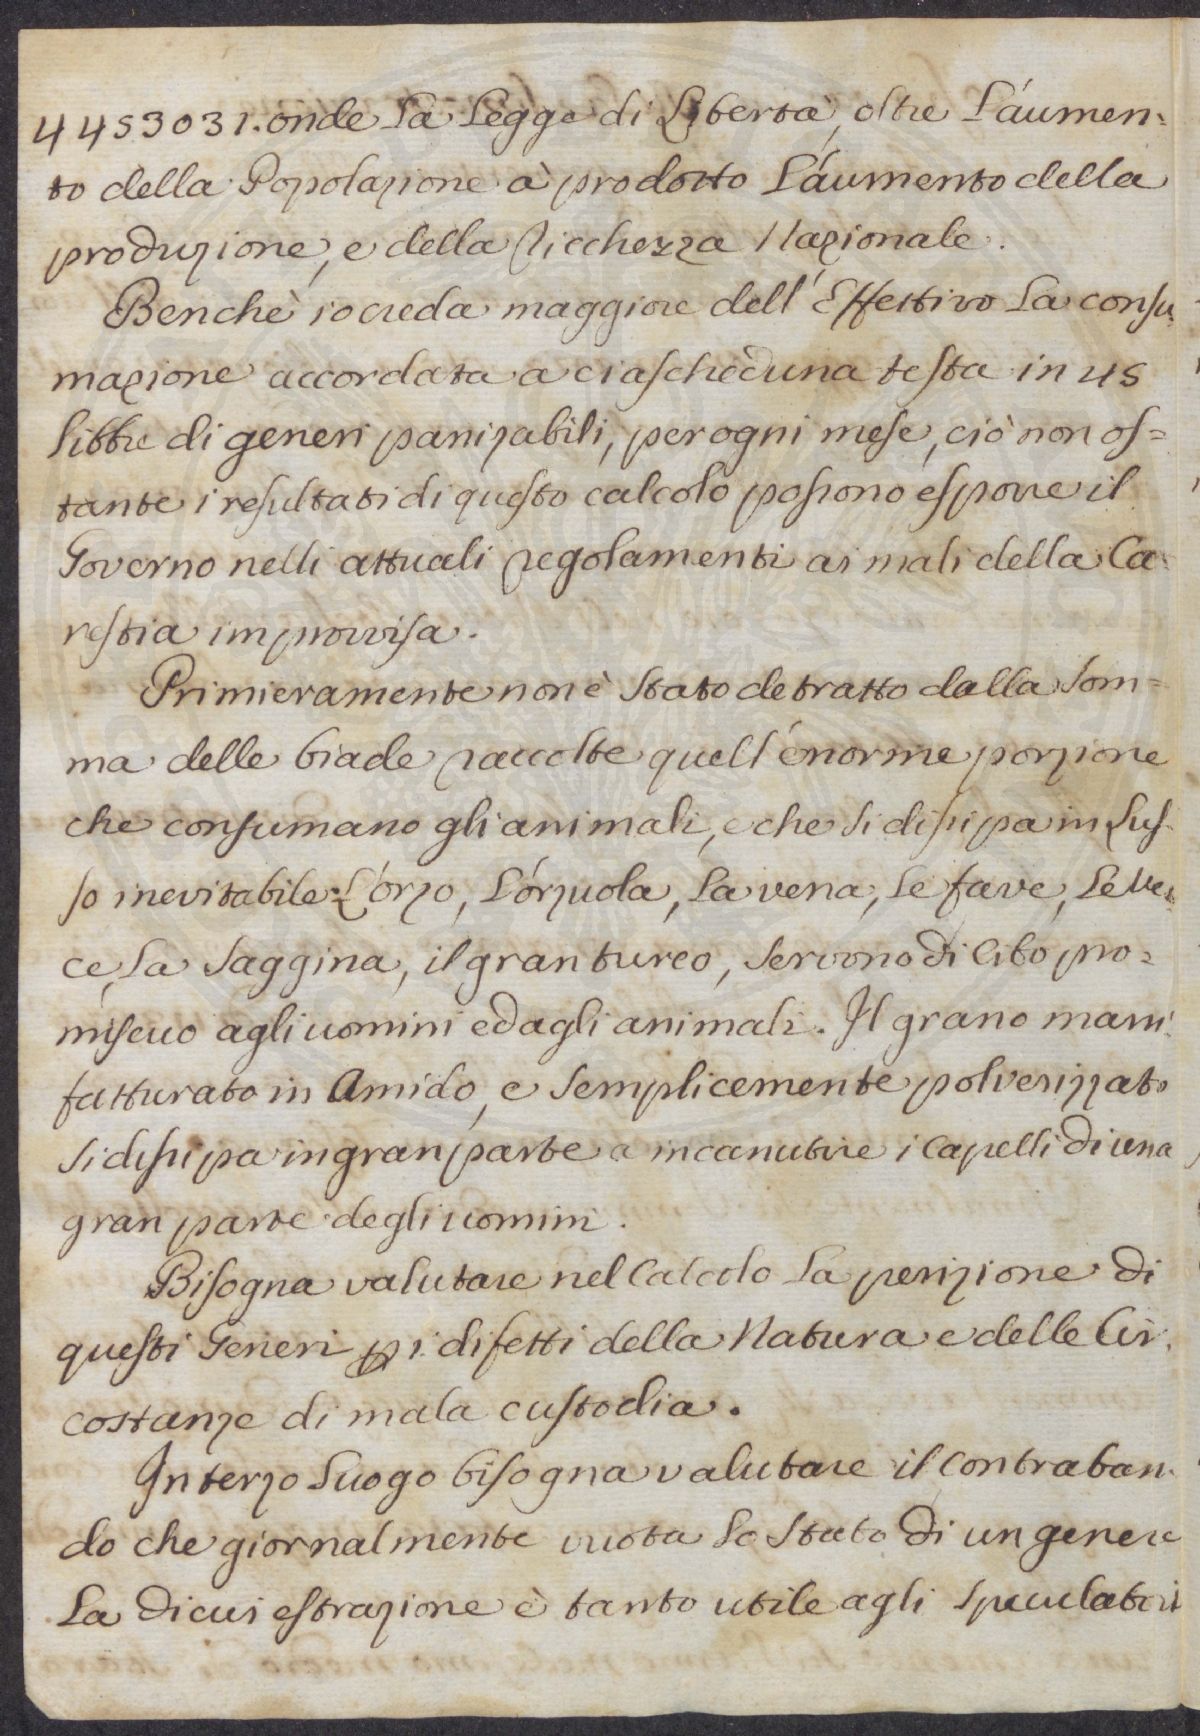 4453031. onde La Legge di Libertà, oltre L'aumen-
to della Popolazione à prodotto L'aumento della
produzione, e della Ricchezza Nazionale.
Benchè io creda maggiore dell'Effettivo La consu-
mazione accordata a ciascheduna testa in 45
libbre di generi panizabili, per ogni mese, ciò non os=
tante i resultati di questo calcolo possono esporre il
Governo nelli attuali regolamenti ai mali della Ca-
restia improvvisa.
Primieramente non è stato detratto dalla som=
ma delle biade raccolte quell'enorme porzione
che consumano gli animali, e che si dissipa in Lus-
so inevitabile: L'orzo, L'orzuola, La vena, Le fave, Le Ve-
ce, La Saggina, il gran turco, servono di Cibo pro=
miscuo agli uomini ed agli animali. Il grano mani-
fatturato in Amido, e semplicemente polverizzato
si dissipa in gran parte a incanutire i Capelli di una
gran parte degli uomini.
Bisogna valutare nel Calcolo La perizione di
questi Generi p i difetti della Natura e delle Cir-
costanze di mala custodia.
In terzo Luogo bisogna valutare il Contraban-
do che giornalmente vuota Lo Stato di un genere
La di cui estrazione è tanto utile agli Speculatori